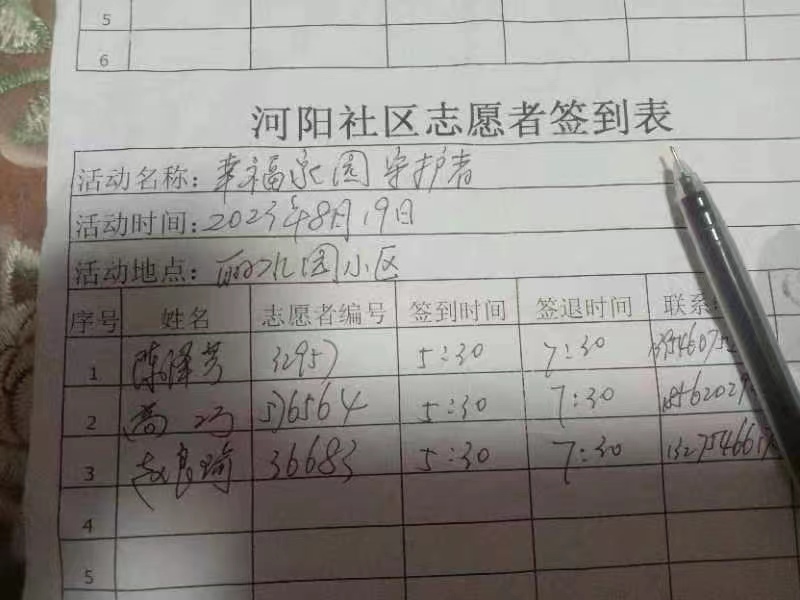 5
6
河阳社区志愿者签到表
活动名称：幸福家园守护者
活动时间：2023年8月19日
活动地点：丽水园小区
序号 姓名 志愿者编号 签到时间 签退时间 联系
1 陈泽芳 32957 5:30 7:30
2 高巧 576564 5:30 7:30
3 赵良瑜 36683 5:30 7:30
4
5